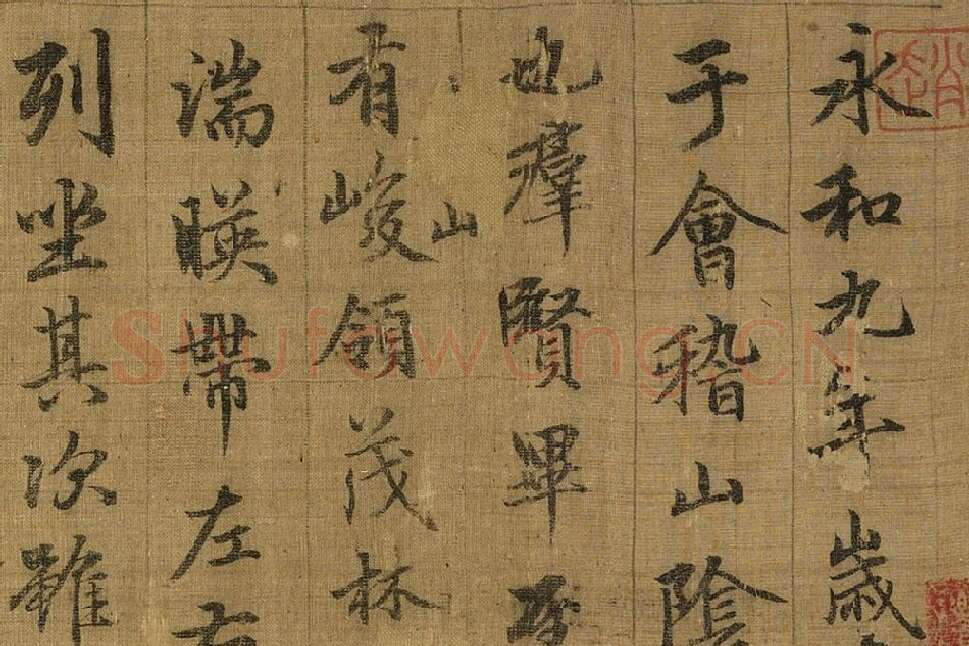 永和九年歲
于會稽山陰
也羣賢畢至
有峻領茂林
山
湍暎帶左右
列坐其次雖
Shufawang.CN